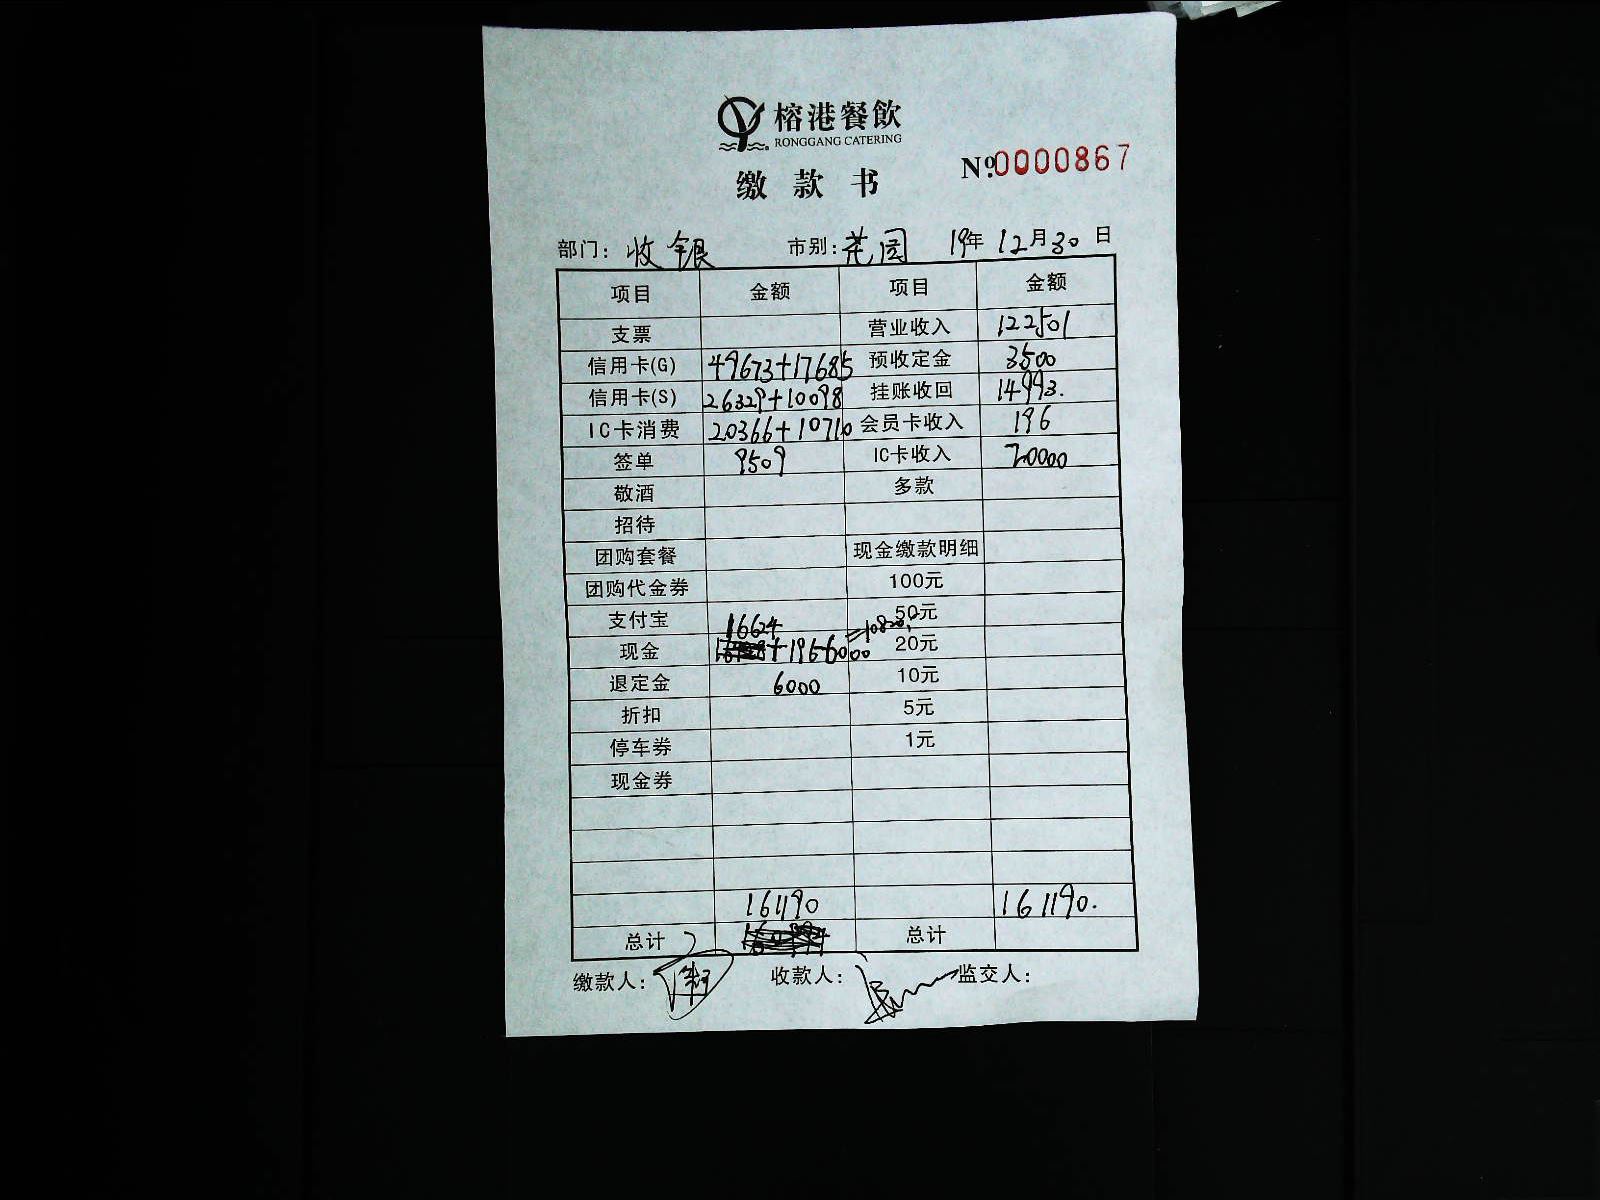 榕港餐飲
RONGGANG CATERING
缴款书
№0000867
部门：收银 市别：花园 19年12月30日
项目 金额 项目 金额
支票 营业收入 122501
信用卡(G) 49673+17685 预收定金 3500
信用卡(S) 26329+10098 挂账收回 14993.
IC卡消费 20366+10710 会员卡收入 196
签单 9509 IC卡收入 20000
敬酒 多款
招待
团购套餐 现金缴款明细
团购代金券 100元
支付宝 50元
16624 =10820.
现金 +196-6000 20元
退定金 6000 10元
折扣 5元
停车券 1元
现金券
161190 161190.
总计 总计
缴款人： 收款人： 监交人：